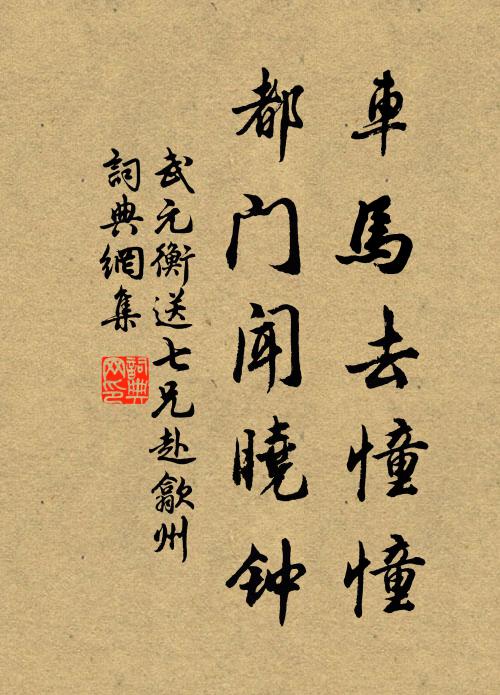 車馬去憧憧
都门闻曉钟
武元衡送七兄赴歙州
詞典網集
詞典网印